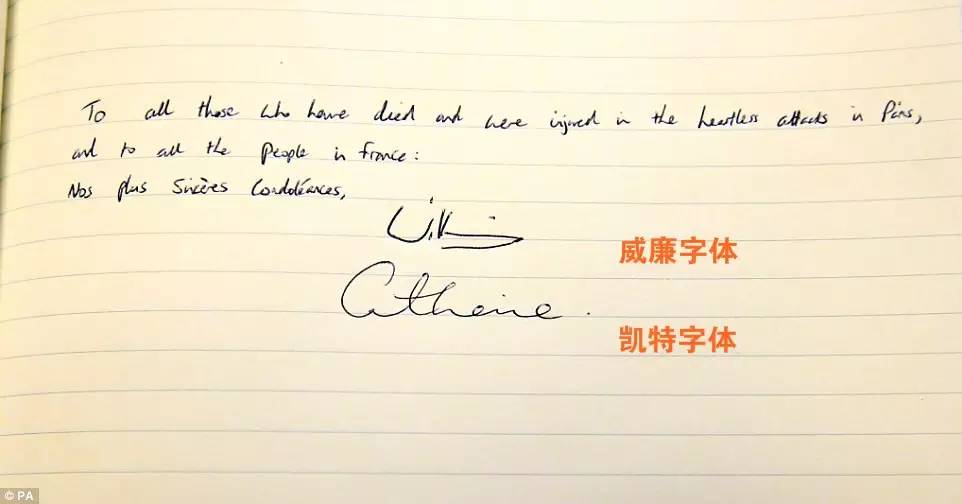 To all those who have died and were injured in the heartless attacks in Paris,
and to all the people in France:
Nos plus Sincères Condoléances,
William
威廉字体
Catherine.
凯特字体
© PA